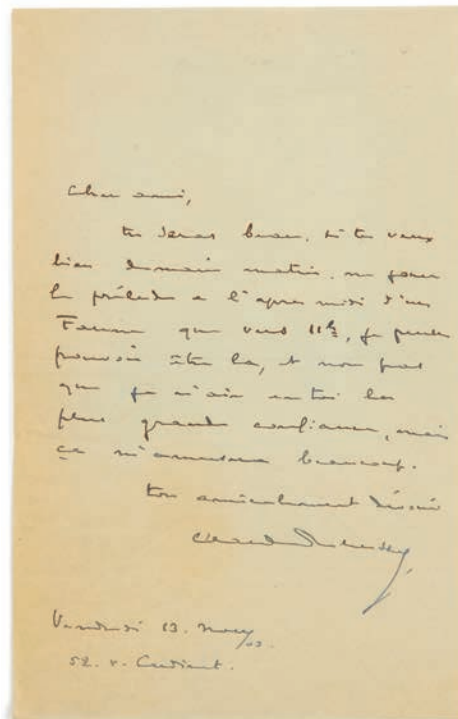 Cher ami,
tu seras beau, si tu veux
bien demain matin, ne jouer
le prélude a l'apres midi d'un
Faune que vers 11h½, je pense
pouvoir être la, et non pas
que je n'aie en toi la
plus grande confiance, mais
ça m'amusera beaucoup.
ton amicalement dévoué
Claude Debussy
Vendredi 13. Nov/03.
52. r. Cardinet.